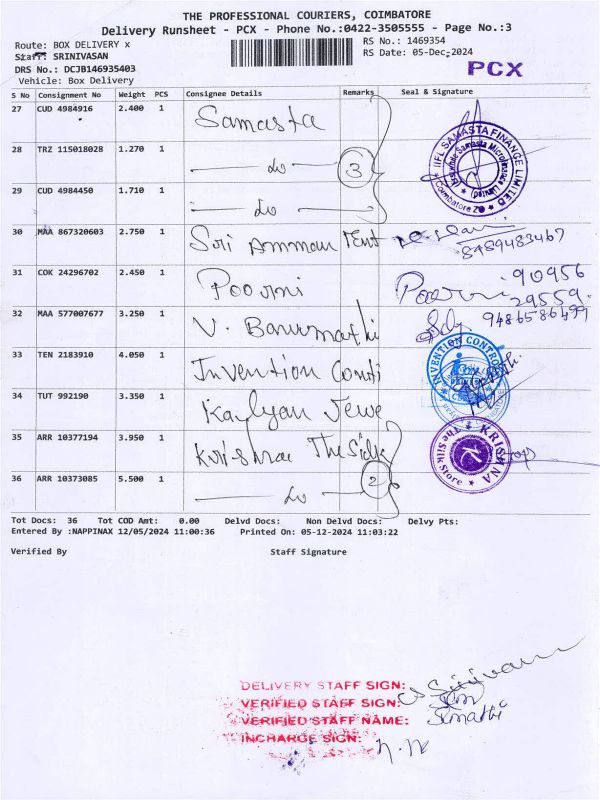 THE PROFESSIONAL COURIERS, COIMBATORE
Delivery Runsheet - PCX - Phone No.:0422-3505555 - Page No.:3
Route: BOX DELIVERY x
RS No.: 1469354
Staff: SRINIVASAN
RS Date: 05-Dec-2024
DRS No.: DCJB146935403
PCX
Vehicle: Box Delivery
S No Consignment No Weight PCS Consignee Details Remarks Seal & Signature
27 CUD 4984916 2.400 1 Samasta
28 TRZ 115018028 1.270 1 3
IIFL SAMASTA FINANCE LIMITED
Coimbatore
29 CUD 4984450 1.710 1
30 MAA 867320603 2.750 1 Sri Amman
8489483467
31 COK 24296702 2.450 1 Poorni Poorni 90956
29559
32 MAA 577007677 3.250 1 V. Banumathi 9486586499
33 TEN 2183910 4.050 1 Invention Conti INVENTION CONTRO
34 TUT 992190 3.350 1 Kaylyan Jewe
35 ARR 10377194 3.950 1 Krishna The Silk KRISHNA The Silk Store
36 ARR 10373085 5.500 1 2
Tot Docs: 36 Tot COD Amt: 0.00 Delvd Docs: Non Delvd Docs: Delvy Pts:
Entered By :NAPPINAX 12/05/2024 11:00:36 Printed On: 05-12-2024 11:03:22
Verified By Staff Signature
DELIVERY STAFF SIGN:
VERIFIED STAFF SIGN:
VERIFIED STAFF NAME:
INCHARGE SIGN: